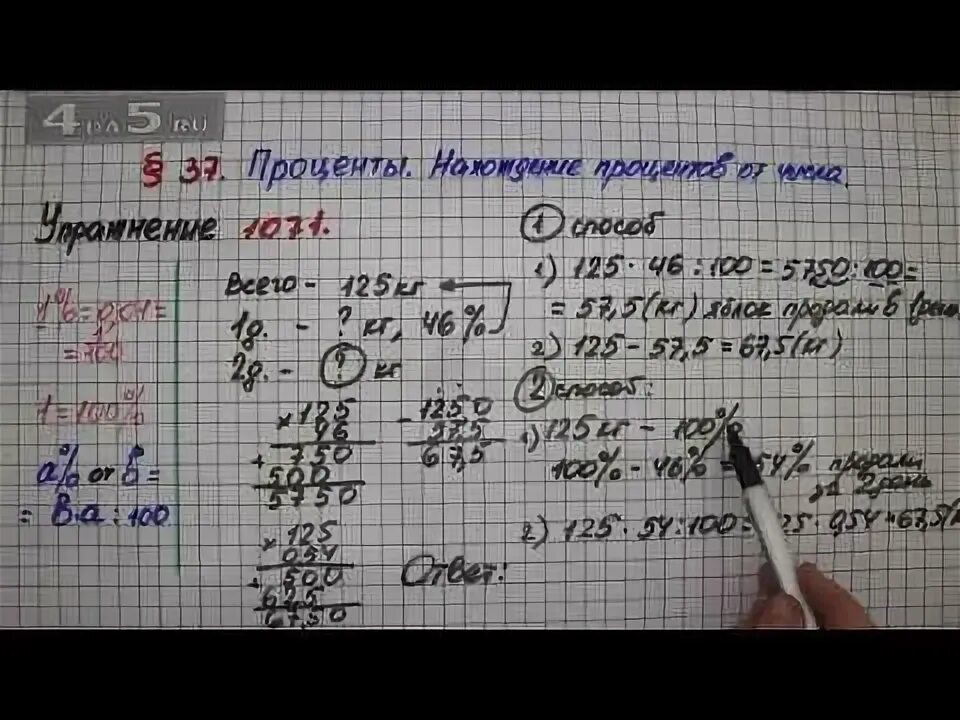 4 на 5 (RU)
§ 37. Проценты. Нахождение процентов от числа.
Упражнение 1071.
1% = 0,01 =
=
1 = 100%
a% от B =
= B·a : 100
Всего - 125 кг
1д. - ? кг, 46%
2д. - ? кг
× 125
46
+ 750
500
5750
- 125,0
57,5
67,5
× 125
0,54
+ 500
625
67,50
1 способ
1) 125 · 46 : 100 = 5750 : 100 =
= 57,5 (кг) яблок продали в 1
2) 125 - 57,5 = 67,5 (кг)
2 способ:
1) 125 кг - 100%
100% - 46% = 54% продали
за 2 день
2) 125 · 54 : 100 = 125 · 0,54 = 67,5 (
Ответ: